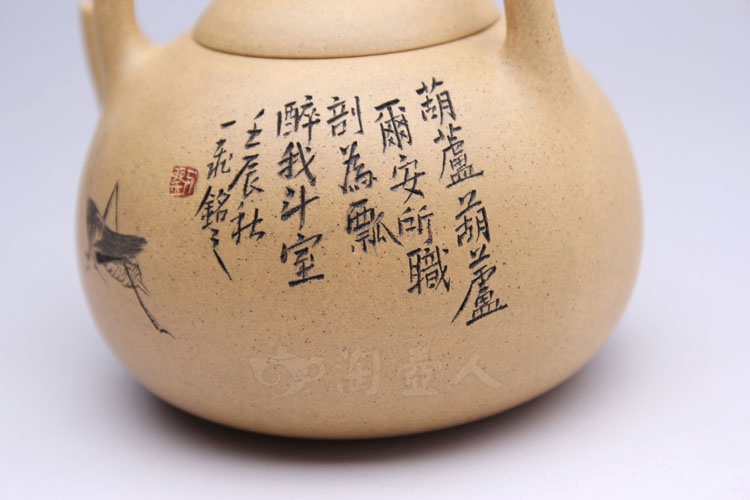 葫蘆葫蘆
爾安所職
剖為瓢
醉我斗室
壬辰秋
一飛銘之
淘壺人